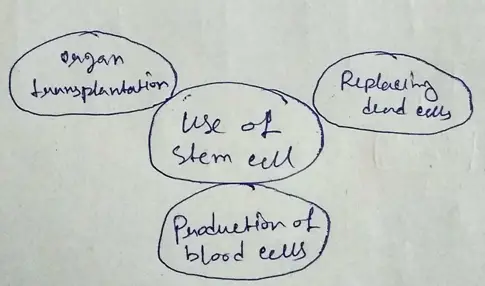 organ
transplantation
Replacing
dead cells
Use of
stem cell
Production of
blood cells